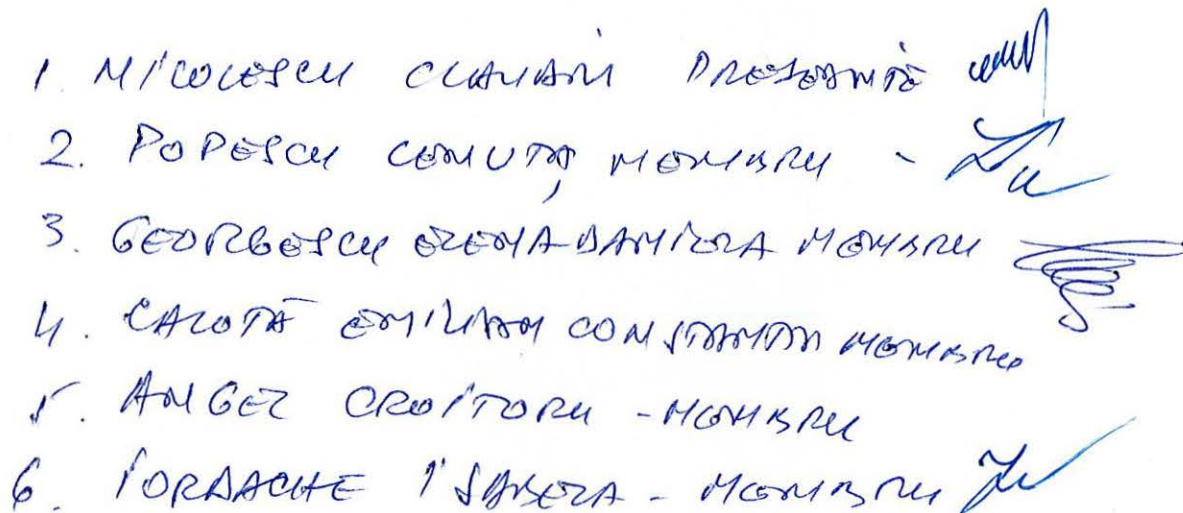 1. NICOLESCU CLAUDIU PREȘEDINTE
2. POPESCU MEMBRU -
3. GEORGESCU ELENA-DANIELA MEMBRU
4. CALOTĂ EMILIAN CONSTANTIN MEMBRU
5. ANGEL CROITORU - MEMBRU
6. IORDACHE ISABELA - MEMBRU